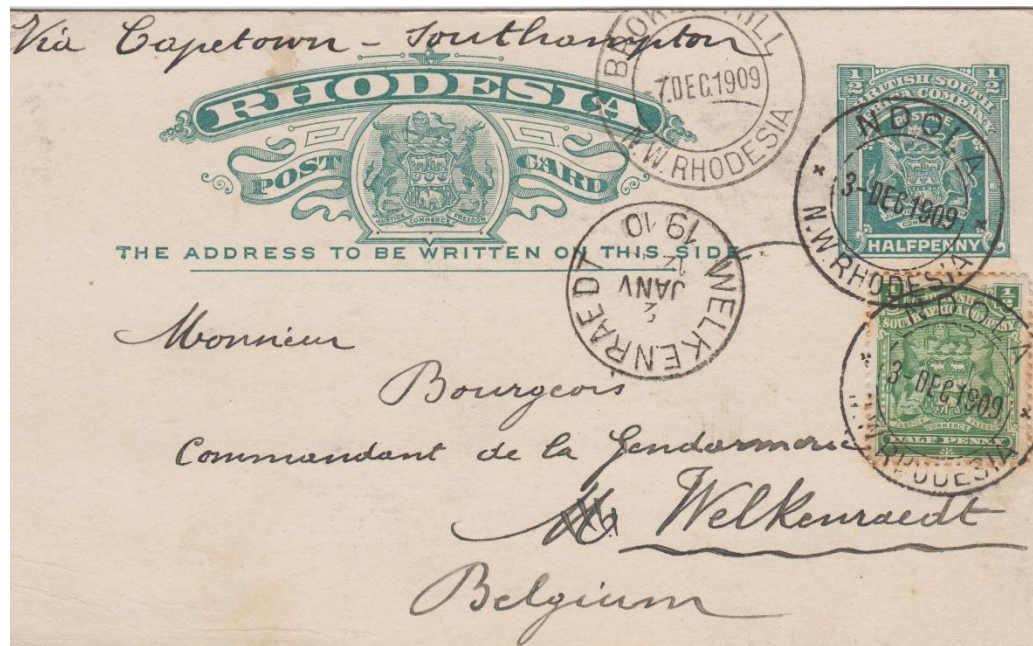 Via Capetown - Southampton
RHODESIA
POST CARD
JUSTICE COMMERCE FREEDOM
THE ADDRESS TO BE WRITTEN ON THIS SIDE
BROKEN HILL
-7.DEC.1909
N.W. RHODESIA
1/2 1/2
BRITISH SOUTH
AFRICA COMPANY
HALFPENNY
NDOLA
3-DEC.1909
N.W. RHODESIA
WELKENRAEDT
2
JANV
12
19 10
1/2
SOUTH AFRICA COMPANY
JUSTICE COMMERCE FREEDOM
HALF PENNY
NDOLA
3-DEC.1909
N.W. RHODESIA
Monsieur
Bourgeois
Commandant de la Gendarmerie
Welkenraedt
Belgium